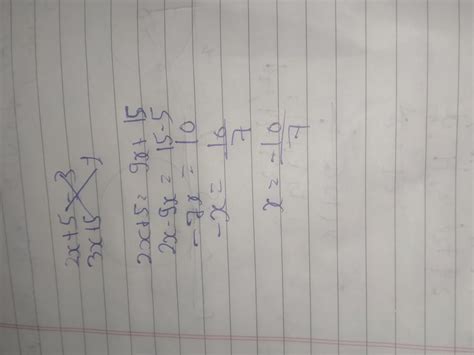 2x+5 3
3x+5 1
2x+5= 9x+15
2x-9x = 15-5
-7x = 10
-x = 10/7
x = -10/7